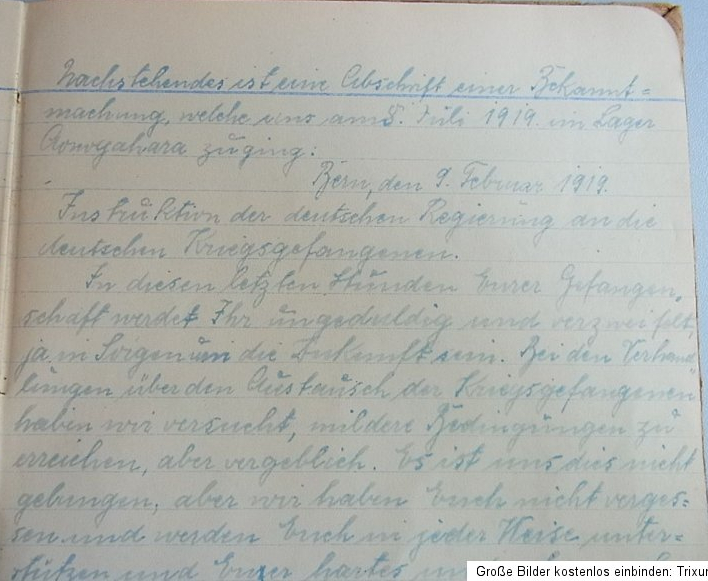 Nachstehendes ist eine Abschrift einer Bekannt=
machung, welche uns am 8. Juli 1919 im Lager
Aonogahara zuging:
Bern, den 9. Februar 1919.
Instruktion der deutschen Regierung an die
deutschen Kriegsgefangenen.
In diesen letzten Stunden Eurer Gefangen„
schaft werdet Ihr ungeduldig und verzweifelt,
ja in Sorgen um die Zukunft sein. Bei den Verhand
lungen über den Austausch der Kriegsgefangenen
haben wir versucht, mildere Bedingungen zu
erreichen, aber vergeblich. Es ist uns dies nicht
gelungen, aber wir haben Euch nicht verges=
sen und werden Euch in jeder Weise unter=
stützen und Euer hartes
Große Bilder kostenlos einbinden: Trixu